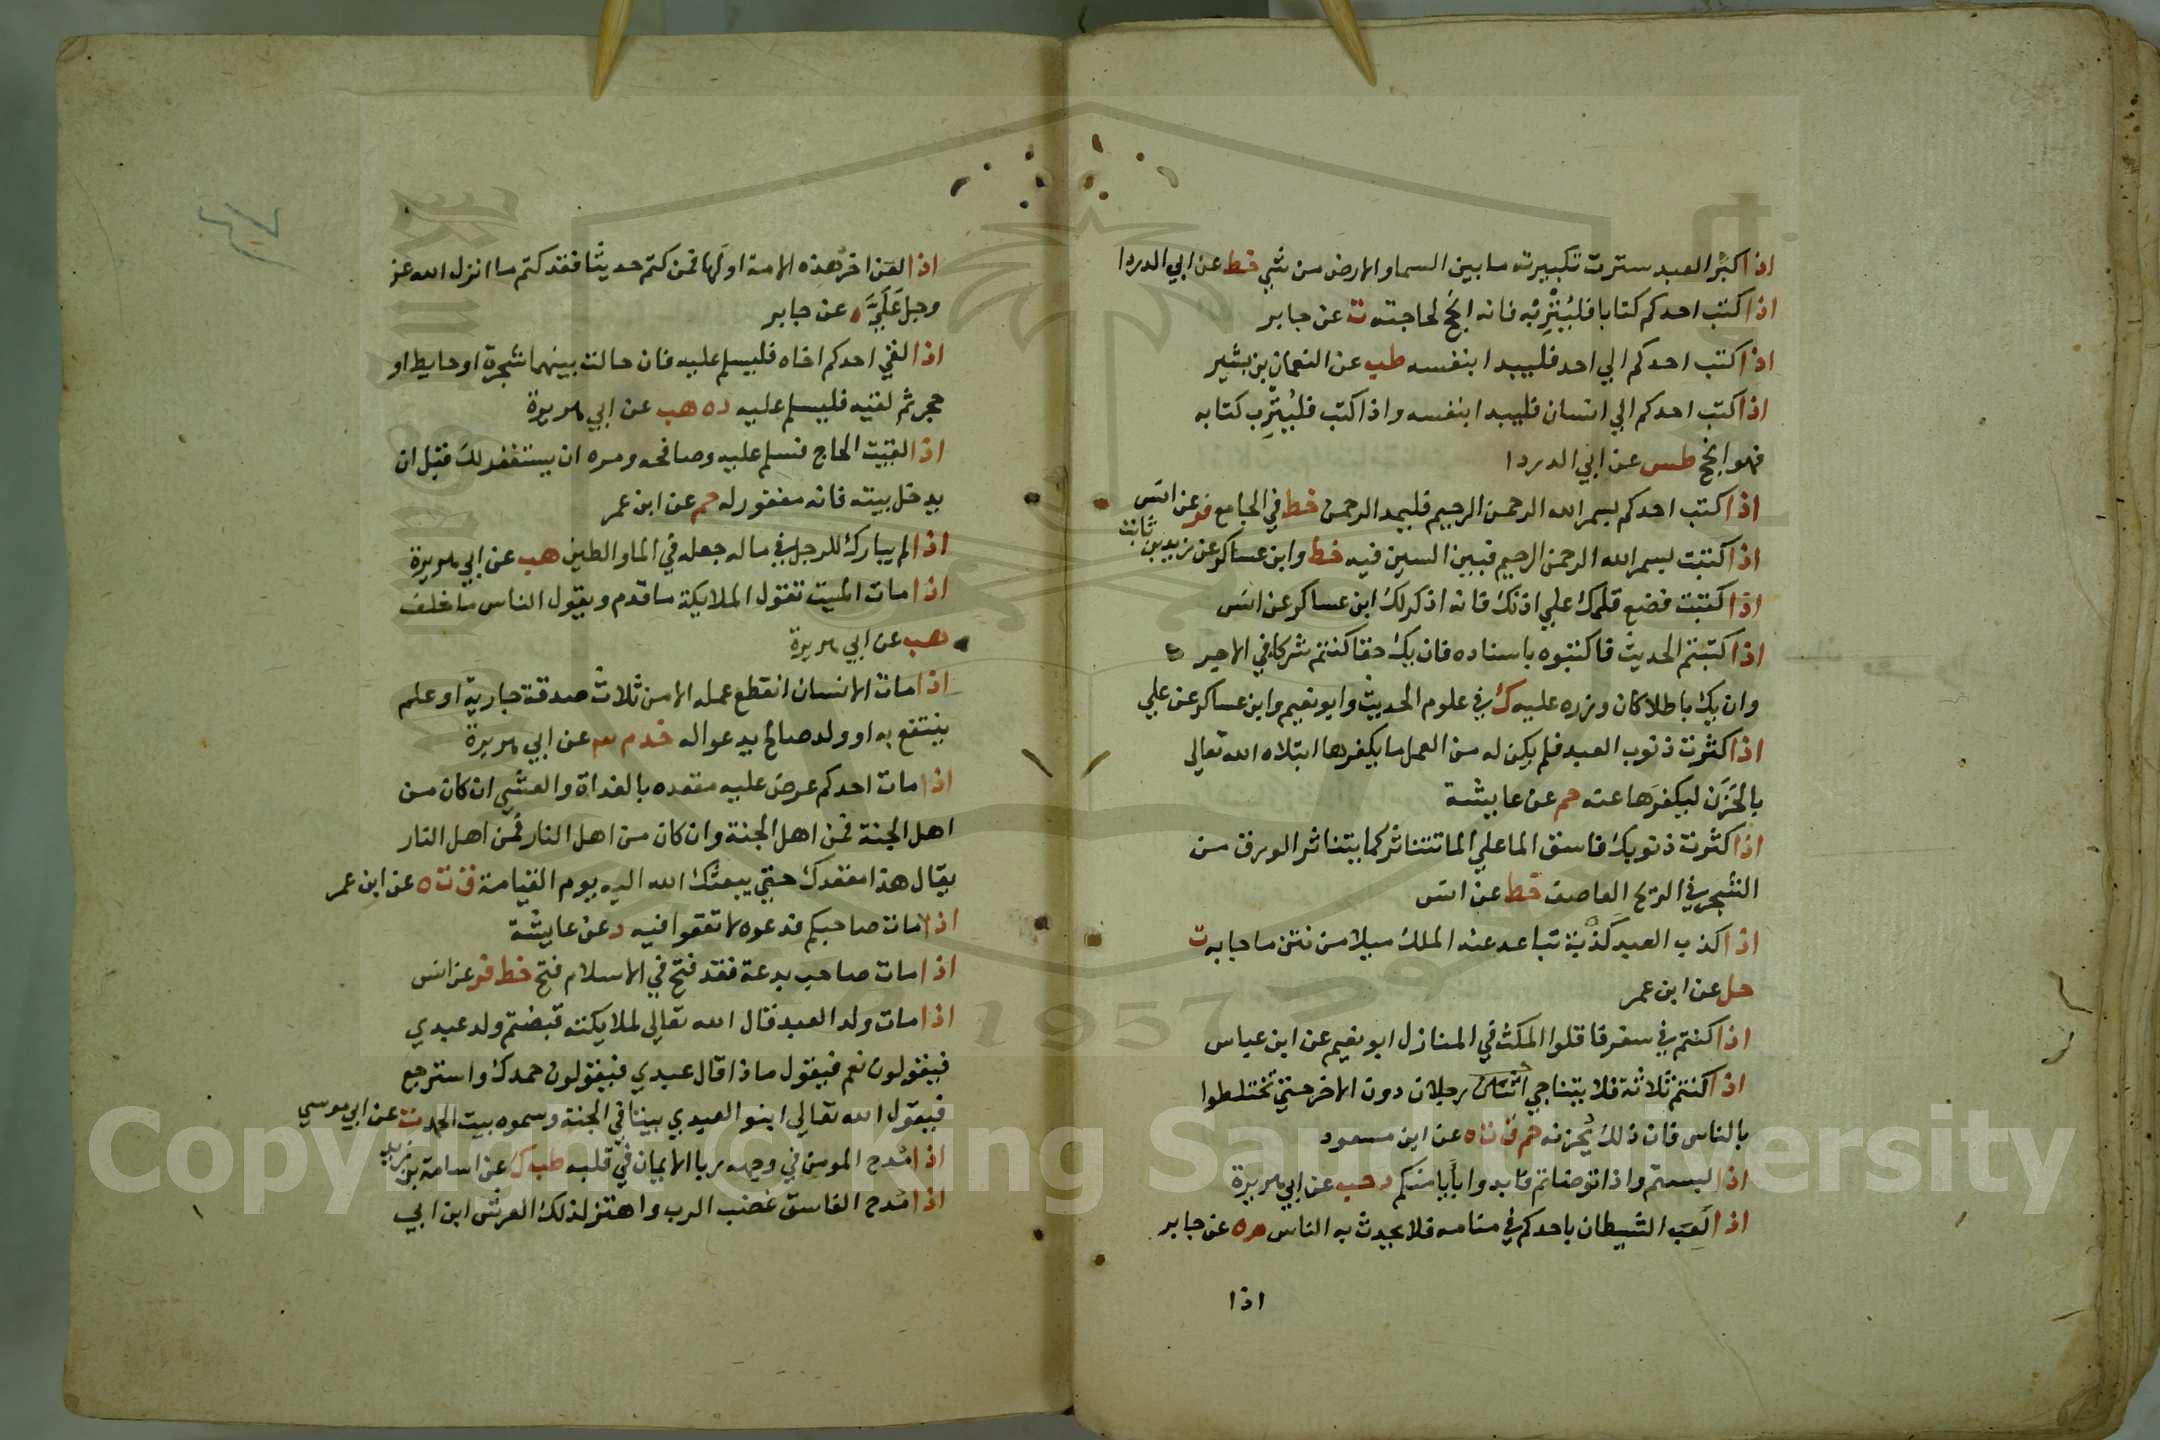 اذا كبر العبد سترت تكبيرته ما بين السما والارض من شي خط عن ابي الدردا
اذا كتب احدكم كتابا فليتربه فانه انجح لحاجته ت عن جابر
اذا كتب احدكم الي احد فليبدا بنفسه طب عن النعمان بن بشير
اذا كتب احدكم الي انسان فليبدا بنفسه واذا كتب فليترب كتابه
فهو انجح طس عن ابي الدردا
اذا كتب احدكم بسم الله الرحمن الرحيم فليمد الرحمن خط في الجامع فر عن انس
اذا كتبت بسم الله الرحمن الرحيم فبين السين فيه خط وابن عساكر عن زيد بن ثابت
اذا كتبت فضع قلمك علي اذنك فانه اذكر لك ابن عساكر عن انس
اذا كتبتم الحديث فاكتبوه باسناده فان يك حقا كنتم شركا في الاجر
وان يك باطلا كان وزره عليه ك في علوم الحديث وابو نعيم وابن عساكر عن علي
اذا كثرت ذنوب العبد فلم يكن له من العمل ما يكفرها ابتلاه الله تعالي
بالحزن ليكفرها عنه حم عن عايشة
اذا كثرت ذنوبك فاسق الما علي الما تتناثر كما يتناثر الورق من
الشجر في الريح العاصف خط عن انس
اذا كذب العبد كذبة تباعد عنه الملك ميلا من نتن ما جا به ت
حل عن ابن عمر
اذا كنتم في سفر فاقلوا المكث في المنازل ابو نعيم عن ابن عباس
اذا كنتم ثلاثة فلا يتناجي رجلان دون الاخر حتي تختلطوا
بالناس فان ذلك يحزنه حم ق ت ه عن ابن مسعود
اذا لبستم واذا توضاتم فابدوا بايامنكم د حب عن ابي هريرة
اذا لعب الشيطان باحدكم في منامه فلا يحدث به الناس م ه عن جابر
اذا
اذا لعن اخر هذه الامة اولها فمن كتم حديثا فقد كتم ما انزل الله عز
وجل علي ه عن جابر
اذا لقي احدكم اخاه فليسلم عليه فان حالت بينهما شجرة او حايط او
حجر ثم لقيه فليسلم عليه د ه هب عن ابي هريرة
اذا لقيت الحاج فسلم عليه وصافحه ومره ان يستغفر لك قبل ان
يدخل بيته فانه مغفور له حم عن ابن عمر
اذا لم يبارك للرجل في ماله جعله في الما والطين هب عن ابي هريرة
اذا مات الميت تقول الملايكة ما قدم ويقول الناس ما خلف
هب عن ابي هريرة
اذا مات الانسان انقطع عمله الا من ثلاث صدقة جارية او علم
ينتفع به او ولد صالح يدعو اله خد م عن ابي هريرة
اذا مات احدكم عرض عليه مقعده بالغداة والعشي ان كان من
اهل الجنة فمن اهل الجنة وان كان من اهل النار فمن اهل النار
يقال هذا مقعدك حتي يبعثك الله اليه يوم القيامة ق ت ه عن ابن عمر
اذا مات صاحبكم فدعوه لا تقعوا فيه د عن عايشة
اذا مات صاحب بدعة فقد فتح في الاسلام فتح خط فر عن انس
اذا مات ولد العبد قال الله تعالي لملايكته قبضتم ولد عبدي
فيقولون نعم فيقول ماذا قال عبدي فيقولون حمدك واسترجع
فيقول الله تعالي ابنوا لعبدي بيتا في الجنة وسموه بيت الحمد ت عن ابي موسي
اذا مدح المومن في وجهه ربا الايمان في قلبه طب ك عن اسامة بن زيد
اذا مدح الفاسق غضب الرب واهتز لذلك العرش ابن ابي
Copyright © King Saud University
1957